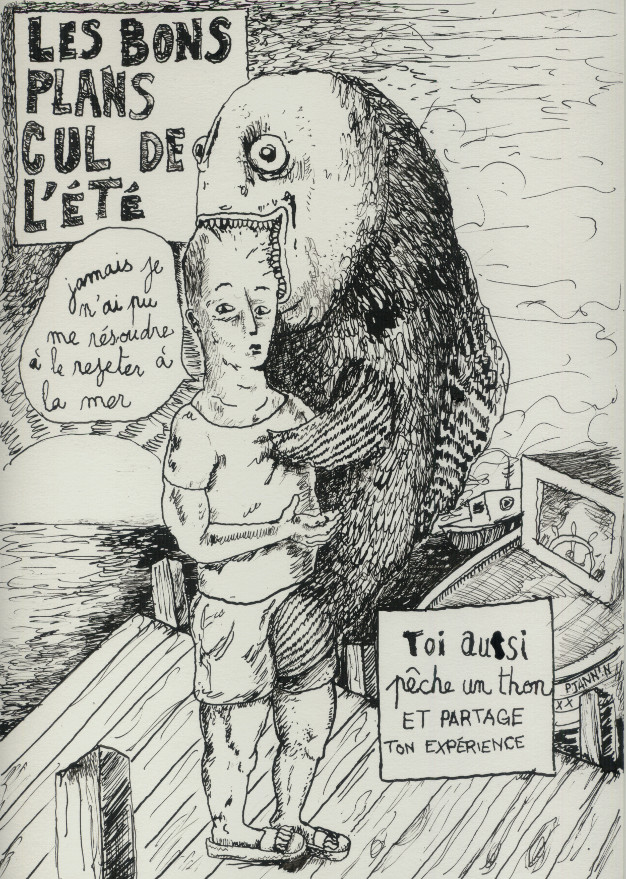 LES BONS
PLANS
CUL DE
L'ÉTÉ
jamais je
n'ai pu
me résoudre
à le rejeter à
la mer
Toi aussi
pêche un thon
ET PARTAGE
TON EXPÉRIENCE
XX